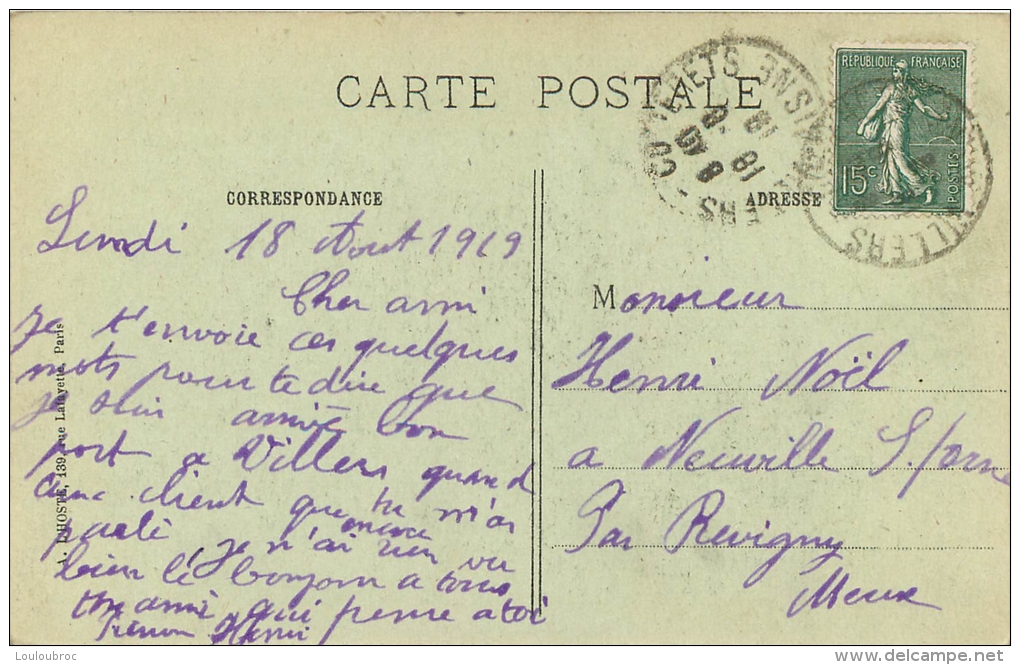 CARTE POSTALE
CORRESPONDANCE
ADRESSE
RÉPUBLIQUE FRANÇAISE
15c
POSTES
VILLERS
Lundi 18 Aout 1919
Cher ami
Je t'envoie ces quelques
mots pour te dire que
je suis arrivé bon
port a Villers quand
client que tu m'as
parlé je n'ai encore rien vu
bien le bonjour a tous
ton ami qui pense a toi
Henri
Monsieur
Henri Noël
a Neuville S/orne
Par Revigny
Meuse
A. LHOSTE, 139, rue Lafayette, Paris
Louloubroc
www.delcampe.net